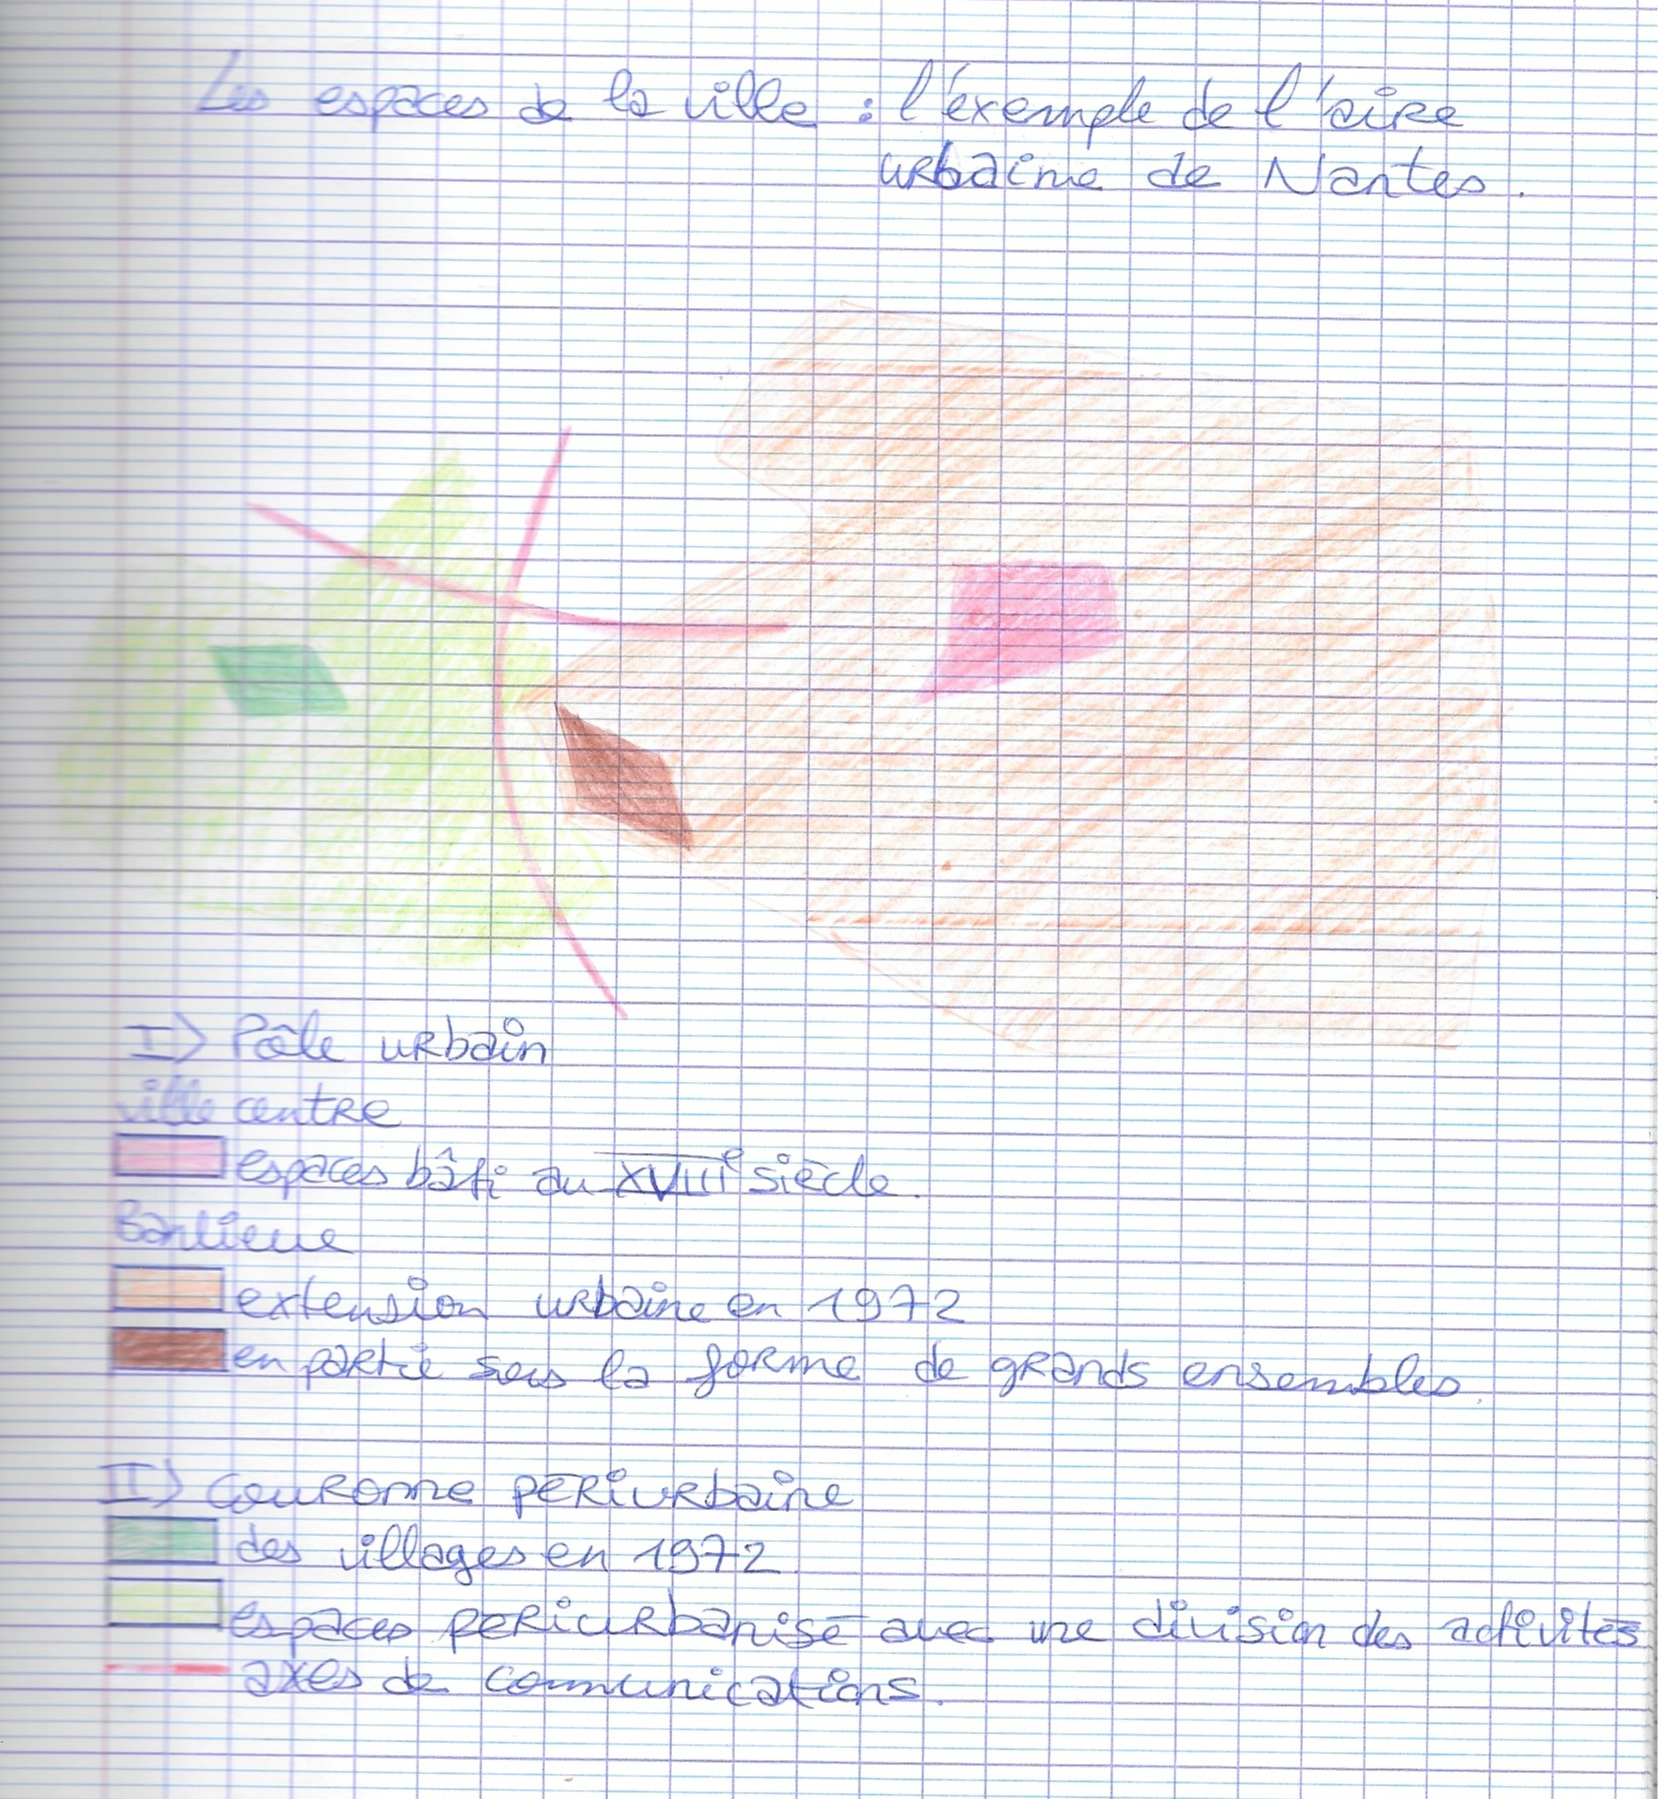 Les espaces de la ville : l'exemple de l'aire
urbaine de Nantes.
I) Pôle urbain
ville centre
espaces bâti au XVIIIe siècle.
Banlieue
extension urbaine en 1972
en partie sous la forme de grands ensembles.
II) Couronne périurbaine
des villages en 1972
espaces périurbanisé avec une division des activités
axes de communications.